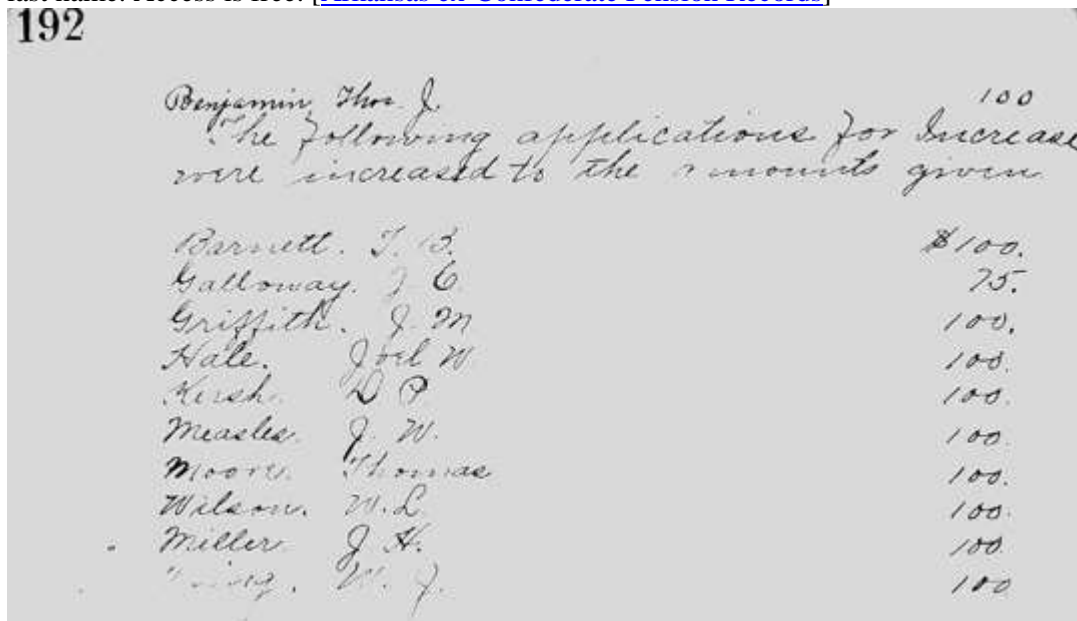 last name. Access is free. [Arkansas ex-Confederate Pension Records]
192
Benjamin, Thos. J. 100
The following applications for Increase
were increased to the amounts given
Barnett. T. B. $100.
Galloway. J C 75.
Griffith. J. M 100.
Hale. Joel W 100.
Kersh. D P 100.
Measles. J. W. 100.
Moore. Thomas 100.
Wilson. W. L. 100.
Miller. J. H. 100.
W. J. 100